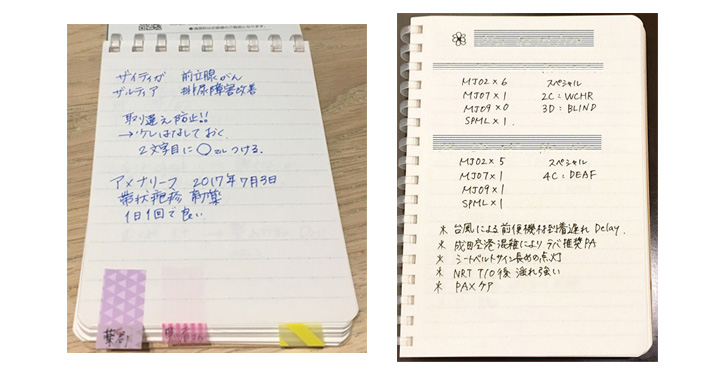 ザイティガ 前立腺がん
ザルティア 排尿障害改善
取り違え防止!!
→少しはなしておく
2文字目に○をつける.
アメナリーフ 2017年7月3日
帯状疱疹 新薬
1日1回で良い
薬局
MJ02×6 スペシャル
MJ07×1 2C:WCHR
MJ09×0 3D:BLIND
SPML×1
MJ02×5 スペシャル
MJ07×1 4C:DEAF
MJ09×1
SPML×1
* 台風による前便機材到着遅れ Delay.
* 成田空港混雑により ラバ推奨PA
* シートベルトサイン長めの点灯
* NRT T/O後 揺れ強い
* PAXケア